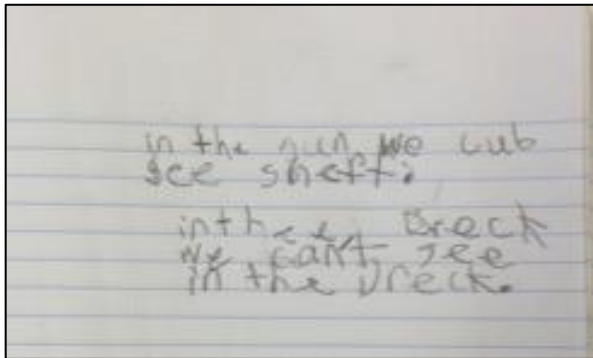 in the we cub
see sheft.
inthe e Breck
we can't see
in the Dreck.